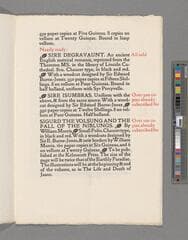 350 paper copies at Five Guineas. 8 copies on
vellum at Twenty Guineas. Bound in limp
vellum.
Nearly ready.
SIRE DEGRAVAUNT. An ancient
English metrical romance, reprinted from the
Thornton MS. in the library of Lincoln Ca-
thedral. 8vo. Chaucer type, in black and red.
With a woodcut designed by Sir Edward
Burne-Jones. 350 paper copies at Fifteen Shil-
lings. 8 vellum copies at Four Guineas. Bound in
half holland, uniform with Syr Percyvelle.
SYR ISUMBRAS. Uniform with the
above, & from the same source. With a wood-
cut designed by Sir Edward Burne-Jones.
350 paper copies at Twelve Shillings. 8 on vel-
lum at Four Guineas. Half holland.
SIGURD THE VOLSUNG AND THE
FALL OF THE NIBLUNGS. By
William Morris. Small Folio. Chaucer type,
in black and red. With a woodcuts designed by
Sir E. Burne-Jones, & new borders by William
Morris. 160 paper copies at Six Guineas, and 6
on vellum at Twenty Guineas. To be pub-
lished at the Kelmscott Press. The size of the
page will be twice that of the Earthly Paradise.
The illustrations will be at the beginning & end
of the volume, as in The Life and Death of
Jason.
All sold
Over 150 co-
pies already
subscribed for
Over 100 co-
pies already
subscribed for